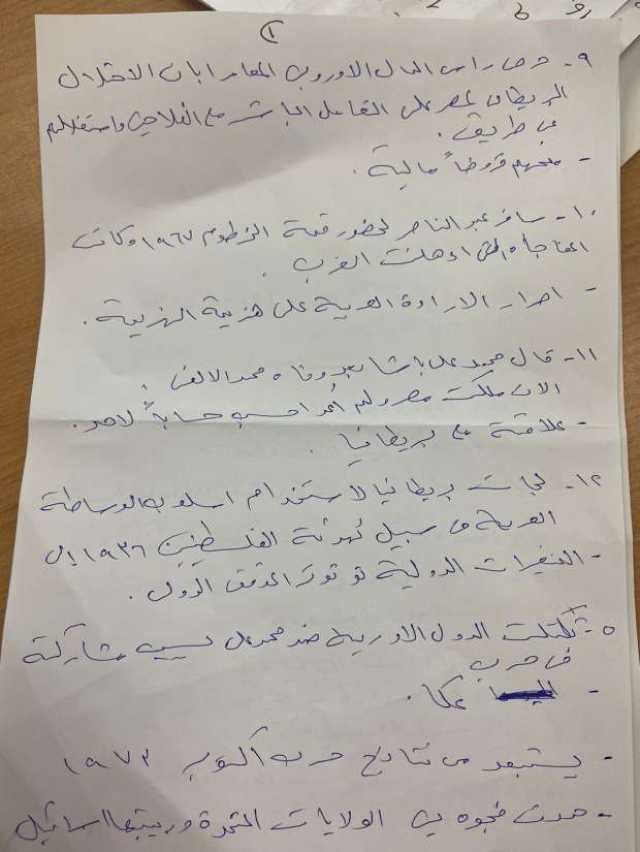 ١
٩- حرص راس المال الاوروبى المغامر ابان الاحتلال
البريطانى لمصر على التعامل المباشر مع الفلاحين واستغلالهم
عن طريق.
- منحهم قروضاً مالية.
١٠- سافر عبد الناصر لحضور قمة الخرطوم ١٩٦٧ وكانت
المفاجأة التى اذهلت الغرب.
- اصرار الارادة العربية على هزيمة الهزيمة.
١١- قال محمد على باشا بعد وفاه محمد الالفى.
الان ملكت مصر ولم أعد احسب حساباً لاحد.
- علاقتة مع بريطانيا.
١٢- لجات بريطانيا لاستخدام اسلوب الوساطة
العربية فى سبيل تهدئة الفلسطينين ١٩٣٦ الى
- التغيرات الدولية توتر الموقف الدولى.
٥- تكتلت الدول الاوربية ضد محمد على بسبب مشاركة
فى حرب
- عكا.
- يستبعد من نتائج حرب أكتوبر ١٩٧٣
- حدث فجوه بين الولايات المتحدة وربيبتها اسرائيل